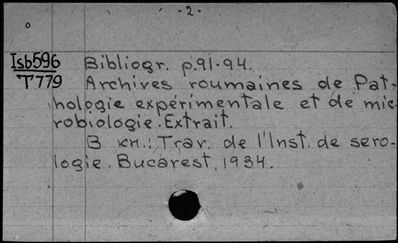 - 2 -
Isb596 Bibliogr. p.91-94.
T779 Archives roumaines de Pat-
hologie expérimentale et de mic
robiologie. Extrait.
В кн.: Trav. de l'Inst. de sero-
logie. Bucarest, 1934.